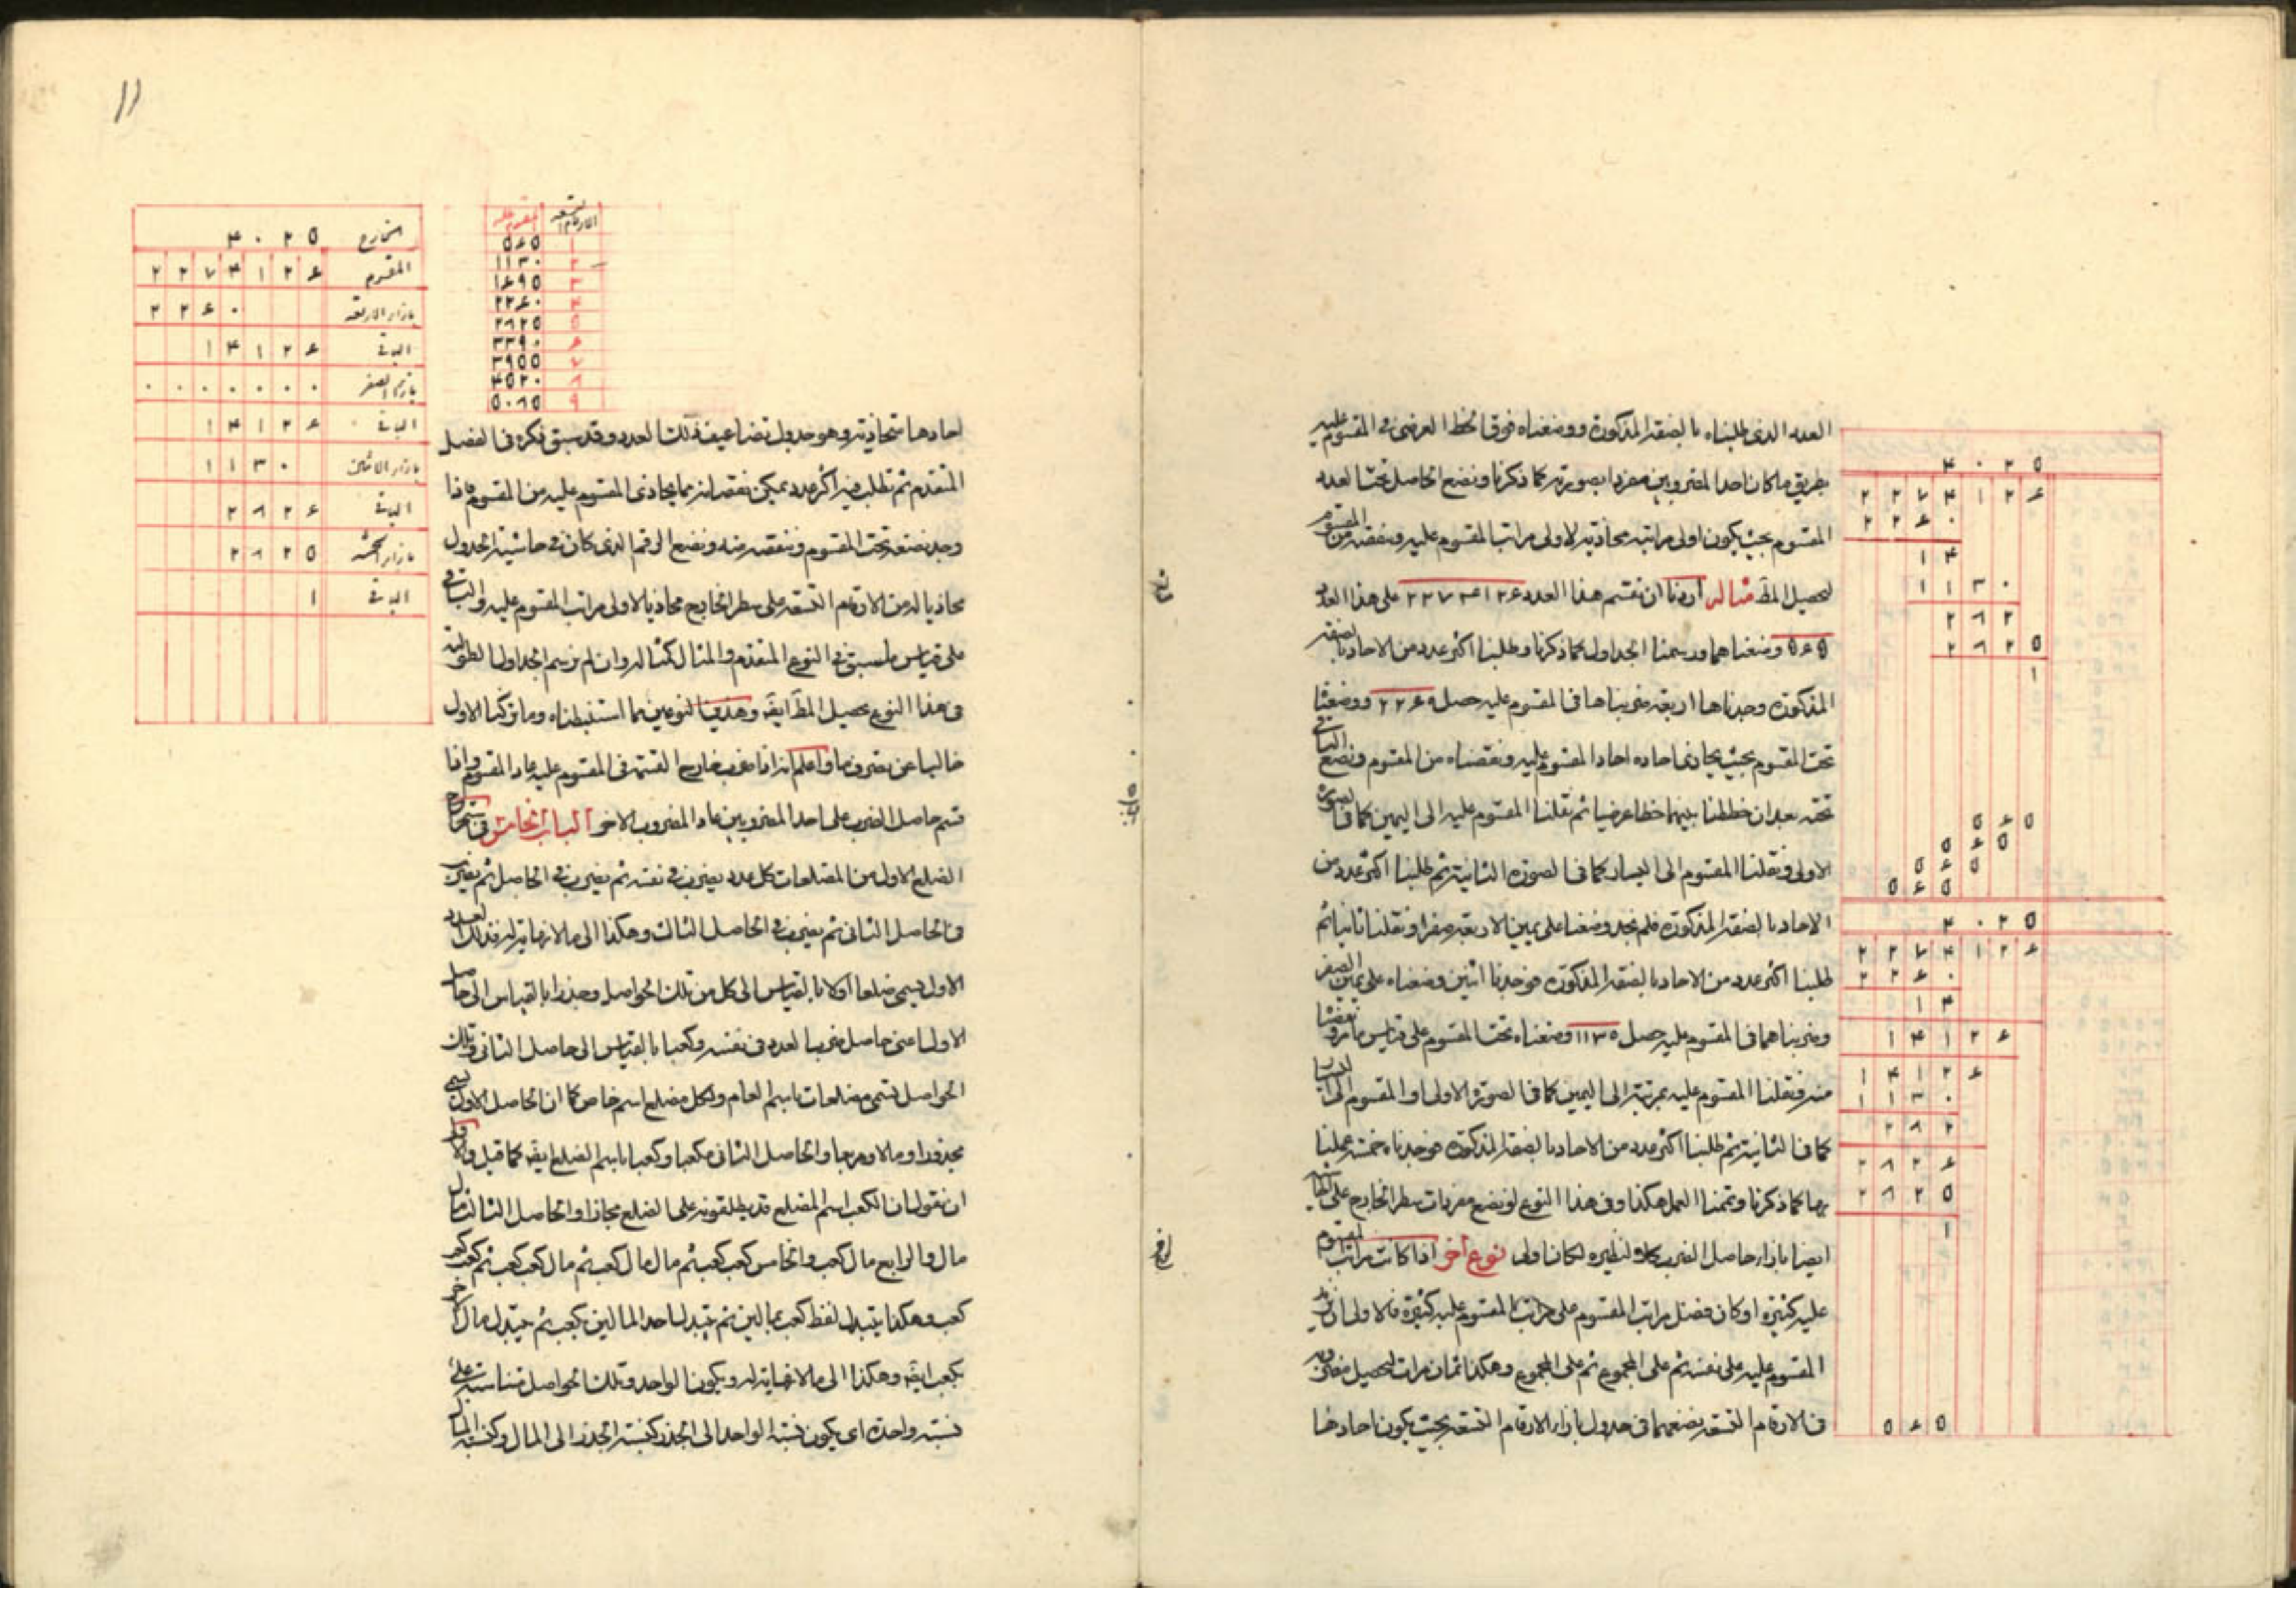 العدد الذى طلبناه بالصفة المذكورة ووضعناه فوق الخط العرضى فى المقسوم عليه
بطريق ما كان احد المضروبين مفردا بصورته كما ذكرنا ونضع الحاصل تحت العدد
المقسوم بحيث يكون اولى مراتبه محاذية لاولى مراتب المقسوم عليه وننقصه من المقسوم
لتحصيل المط مثاله أردنا ان نقسم هذا العدد ٢٢٧٤١٢۶ على هذا العدد
٥۶٥ وضعناهما ورسمنا الجداول كما ذكرنا وطلبنا اكثر عدد من الاحاد بالصفة
المذكورة وجدناها اربعة ضربناها فى المقسوم عليه حصل ٢٢۶٥ ووضعنا
تحت المقسوم بحيث يحاذى احاده احاد المقسوم عليه ونقصناه من المقسوم ونضع الباقى
تحته بعد ان خططنا بينهما خطا عرضيا ثم نقلنا المقسوم عليه الى اليمين كما فى الصورة
الاولى ونقلنا المقسوم الى اليسار كما فى الصورة الثانية ثم طلبنا اكثر عدد من
الاحاد بالصفة المذكورة فلم نجد وضعنا على يمين الاربعة صفرا ونقلنا ثانيا ثم
طلبنا اكثر عدد من الاحاد بالصفة المذكورة فوجدنا اثنين وضعناه على يمين الصفر
وضربناهما فى المقسوم عليه حصل ١١٣٥ وضعناه تحت المقسوم على قياس ما مر ونقصنا
منه فنقلنا المقسوم عليه بمرتبة الى اليمين كما فى الصورة الاولى او المقسوم الى اليسار
كما فى الثانية ثم طلبنا اكثر عدد من الاحاد بالصفة المذكورة فوجدناه خمسة عملنا
بها كما ذكرنا وتممنا العمل هكذا وفى هذا النوع لو نضع مفردات سطر الخارج على
ايضا بازاء حاصل الضرب كلا لنظيره لكان اولى نوع آخر اذا كانت مراتب المقسوم
عليه كثيرة او كان فضل مراتب المقسوم على مراتب المقسوم عليه كثيرة فالاولى ان نزيد
المقسوم عليه على نفسه ثم على المجموع ثم على المجموع وهكذا ثمان مرات لتحصيل
فى الارقام التسعة نضعهما فى جدول بازاء الارقام التسعة بحيث يكون احادها
٤ ٠ ٢ ٥
٢ ٢ ٧ ٤ ١ ٢ ۶
٢ ٢ ۶ ٠
١ ٤
١ ١ ٣ ٠
٢ ٨ ٢
٢ ٨ ٢ ٥
١
٥ ۶ ٥
٥ ۶ ٥
٥ ۶ ٥
٥ ۶ ٥
٤ ٠ ٢ ٥
٢ ٢ ٧ ٤ ١ ٢ ۶
٢ ٢ ۶ ٠
١ ٤
١ ٤ ١ ٢ ۶
١ ٤ ١ ٢ ۶
١ ١ ٣ ٠
٢ ٨ ٢
٢ ٨ ٢ ۶
٢ ٨ ٢ ٥
١
٥ ۶ ٥
١١
الارقام التسعة المقسوم عليه
١ ٥۶٥
٢ ١١٣٠
٣ ١۶٩٥
٤ ٢٢۶٠
٥ ٢٨٢٥
۶ ٣٣٩٠
٧ ٣٩٥٥
٨ ٤٥٢٠
٩ ٥٠٨٥
الخارج ٤ ٠ ٢ ٥
المقسوم ٢ ٢ ٧ ٤ ١ ٢ ۶
بازاء الاربعة ٢ ٢ ۶ ٠
الباقى ١ ٤ ١ ٢ ۶
بازاء الصفر ٠ ٠ ٠ ٠ ٠ ٠ ٠
الباقى ١ ٤ ١ ٢ ۶
بازاء الاثنين ١ ١ ٣ ٠
الباقى ٢ ٨ ٢ ۶
بازاء الخمسة ٢ ٨ ٢ ٥
الباقى ١
احادها متحاذية وهو جدول تضاعيف ذلك العدد وقد سبق ذكره فى الفصل
المتقدم ثم نطلب فيه اكثر عدد يمكن نقصانه مما يحاذى المقسوم عليه من المقسوم فاذا
وجد نضعه تحت المقسوم وننقصه منه ونضع الرقم الذى كان فى حاشية الجدول
محاذيا له من الارقام التسعة على سطر الخارج محاذيا لاولى مراتب المقسوم عليه والباقى
على قياس ما سبق فى النوع المتقدم والمثال كمثاله وان لم نرسم الجداول الطولية
فى هذا النوع يحصل المط ايضا وهذين النوعين مما استنبطناه وما تركنا الاول
خاليا عن تصرف ما واعلم انه اذا ضرب خارج القسمة فى المقسوم عليه عاد المقسوم واذا
قسم حاصل الضرب على احد المضروبين عاد المضروب الاخر الباب الخامس فى استخراج
الضلع الاول من المضلعات كل عدد يضرب فى نفسه ثم يضرب فى الحاصل ثم يضرب
فى الحاصل الثانى ثم يضرب فى الحاصل الثالث وهكذا الى ما لا نهاية له فذلك العدد
الاول يسمى ضلعا اولا بالقياس الى كل من تلك الحواصل وجذرا بالقياس الى حاصل
الاول اعنى حاصل ضرب العدد فى نفسه وكعبا بالقياس الى حاصل الثانى وتلك
الحواصل تسمى مضلعات باسم العام ولكل مضلع اسم خاص كما ان الحاصل الاول يسمى
مجذورا ومالا ومربعا والحاصل الثانى مكعبا وكعبا باسم الضلع ايضا كما قيل
ان نقول ان الكعب اسم المضلع قد يطلقونه على الضلع مجازا والحاصل الثالث مال
مال والرابع مال كعب والخامس كعب كعب ثم مال مال كعب ثم مال كعب كعب ثم كعب كعب
كعب وهكذا يتبدل لفظ كعب بمالين ثم يتبدل احد المالين بكعب ثم يتبدل مال
بكعب ايضا وهكذا الى ما لا نهاية له ويكون الواحد وتلك الحواصل متناسبة على
نسبة واحدة اى يكون نسبة الواحد الى الجذر كنسبة الجذر الى المال وكنسبة المال